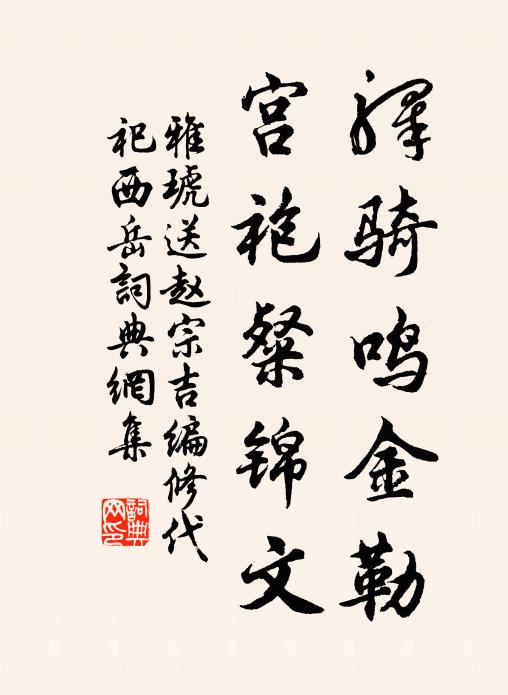 驿骑鸣金勒
宫袍粲锦文
雅琥送赵宗吉编修代
祀西岳詞典網集
詞典网印